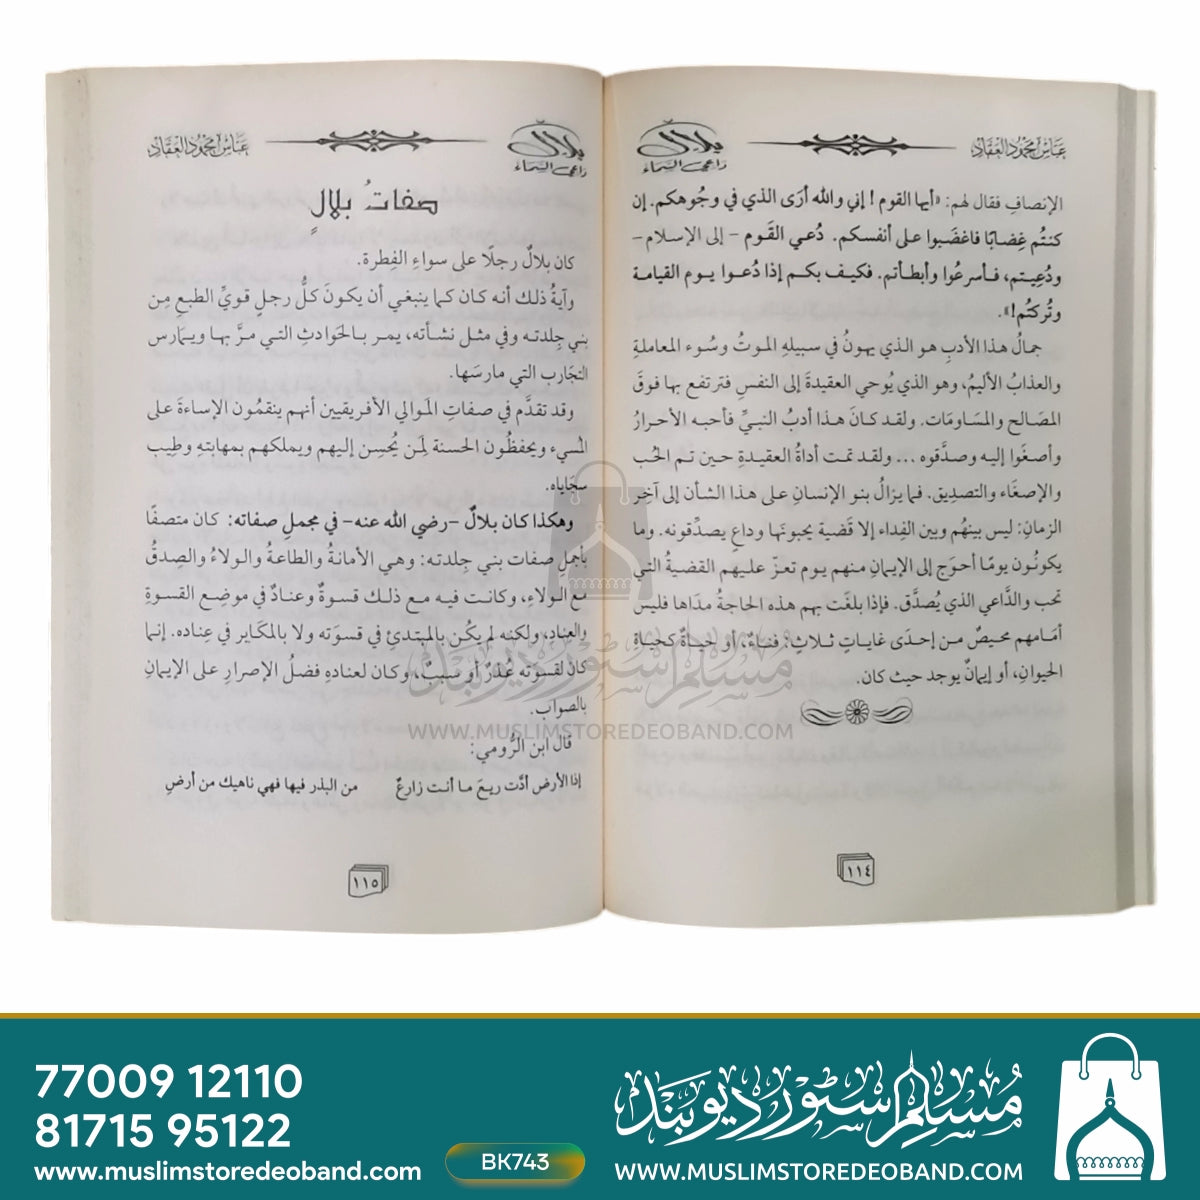 عباس محمود العقاد
بلال
داعي السماء
الإنصافِ فقال لهم: «أيها القوم! إني والله أرَى الذي في وجُوهكم. إن
كنتُم غِضابًا فاغضَبوا على أنفسكم. دُعي القَوم – إلى الإسلام –
ودُعِيتم، فأسرعُوا وأبطأتم. فكيف بكم إذا دُعوا يوم القيامة
وتُركتُم!».
جمالُ هذا الأدبِ هو الذي يهونُ في سبيلهِ الموتُ وسُوء المعاملةِ
والعذابُ الأليمُ، وهو الذي يُوحي العقيدةَ إلى النفسِ فترتفع بها فوقَ
المصَالح والمسَاومَات. ولقد كانَ هذا أدبُ النبيِّ فأحبه الأحرارُ
وأصغَوا إليه وصدَّقوه ... ولقد تمت أداةُ العقيدةِ حين تم الحُب
والإصغَاء والتصدِيق. فما يزالُ بنو الإنسانِ على هذا الشأن إلى آخِر
الزمانِ: ليس بينهُم وبين الفِداء إلا قَضية يحبونهَا وداعٍ يصدِّقونه. وما
يكونُون يومًا أحوَج إلى الإيمانِ منهم يوم تعزّ عليهم القضيةُ التي
تحب والدَّاعي الذي يُصدَّق. فإذا بلغَت بهم هذه الحاجةُ مدَاها فليس
أمَامهم محيصٌ من إحدَى غاياتٍ ثلاثٍ: فناءٌ، أو حياةٌ كحيَاةِ
الحيوانِ، أو إيمانٌ يوجد حيث كان.
١١٤
بلال
داعي السماء
عباس محمود العقاد
صفاتُ بلالٍ
كان بلالٌ رجلًا على سواءِ الفِطرة.
وآيةُ ذلك أنه كان كما ينبغي أن يكونَ كلُّ رجلٍ قويِّ الطبعِ مِن
بني جِلدته وفي مثل نشأته، يمر بالحَوادثِ التي مرَّ بها ويمَارس
التجَارب التي مارسَها.
وقد تقدَّم في صفاتِ المَوالي الأفريقيين أنهم ينقمُون الإساءةَ على
المُسيء ويحفظُون الحسنة لمَن يُحسِن إليهم ويملكهم بمهابتهِ وطِيب
سجَاياه.
وهكذا كان بلالٌ –رضي الله عنه– في مجملِ صفاته: كان متصفًا
بأجملِ صفات بني جِلدته: وهي الأمانةُ والطاعةُ والولاءُ والصِدقُ
مع الولاءِ، وكانت فيه مع ذلك قسوةٌ وعنادٌ في موضِع القسوةِ
والعنادِ، ولكنه لم يكُن بالمبتدئِ في قسوَته ولا بالمكَابر في عِناده. إنما
كان لقسوته عُذرٌ أو سببٌ، وكان لعنادهِ فضلُ الإصرارِ على الإيمانِ
بالصواب.
قال ابن الرُّومي:
إذا الأرض أدَّت ريعَ ما أنت زارعٌ من البذر فيها فهي ناهيك من أرضِ
١١٥
مسلم سٹور دیوبند
WWW.MUSLIMSTOREDEOBAND.COM
77009 12110
81715 95122
www.muslimstoredeoband.com
BK743
مسلم سٹور دیوبند
WWW.MUSLIMSTOREDEOBAND.COM